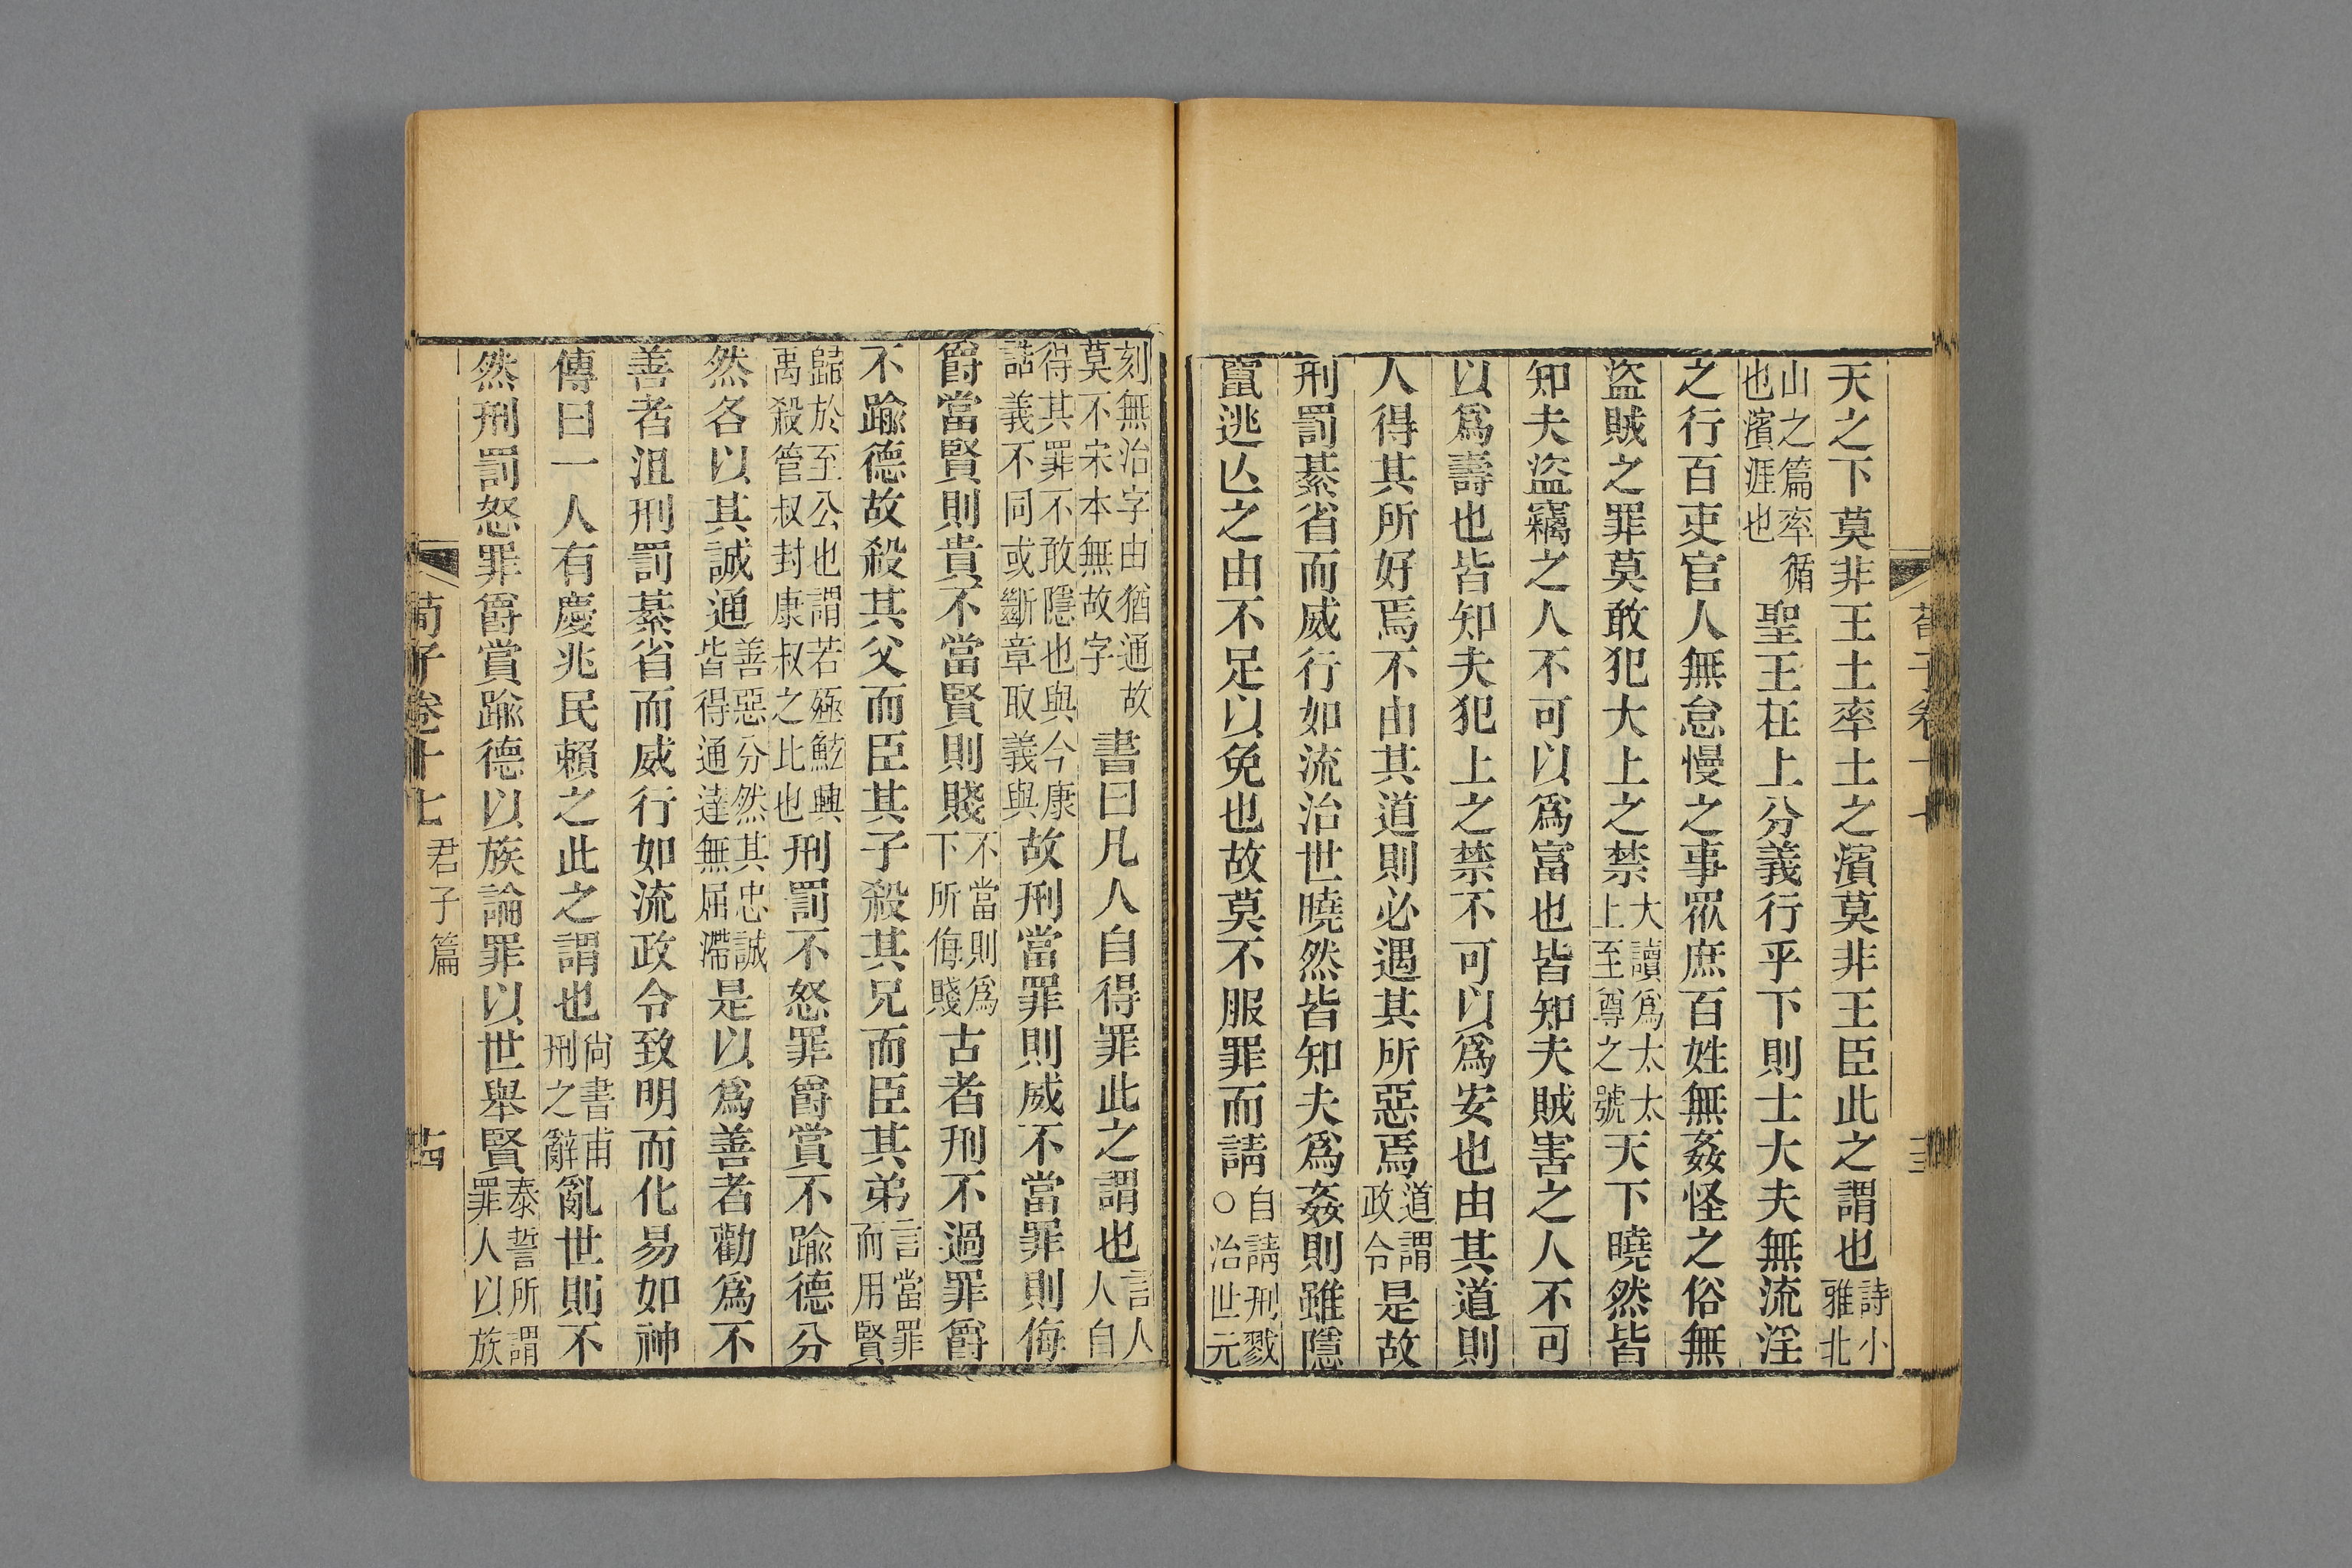 荀子卷十七　十三
天之下莫非王土率土之濱莫非王臣此之謂也詩小雅北
山之篇率循也濱涯也聖王在上分義行乎下則士大夫無流淫
之行百吏官人無怠慢之事眾庶百姓無姦怪之俗無
盜賊之罪莫敢犯大上之禁大讀爲太太上至尊之號天下曉然皆
知夫盜竊之人不可以爲富也皆知夫賊害之人不可
以爲壽也皆知夫犯上之禁不可以爲安也由其道則
人得其所好焉不由其道則必遇其所惡焉道謂政令是故
刑罰綦省而威行如流治世曉然皆知夫爲姦則雖隱
竄逃亡之由不足以免也故莫不服罪而請自請刑戮○治世元
刻無治字由猶通故莫不宋本無故字書曰凡人自得罪此之謂也言人人自
得其罪不敢隱也與今康誥義不同或斷章取義與故刑當罪則威不當罪則侮
爵當賢則貴不當賢則賤不當則爲下所侮賤古者刑不過罪爵
不踰德故殺其父而臣其子殺其兄而臣其弟言當罪而用賢
歸於至公也謂若殛鯀興禹殺管叔封康叔之比也刑罰不怒罪爵賞不踰德分
然各以其誠通善惡分然其忠誠皆得通達無屈滯是以爲善者勸爲不
善者沮刑罰綦省而威行如流政令致明而化易如神
傳曰一人有慶兆民賴之此之謂也尙書甫刑之辭亂世則不
然刑罰怒罪爵賞踰德以族論罪以世舉賢泰誓所謂罪人以族
荀子卷十七　君子篇　十四